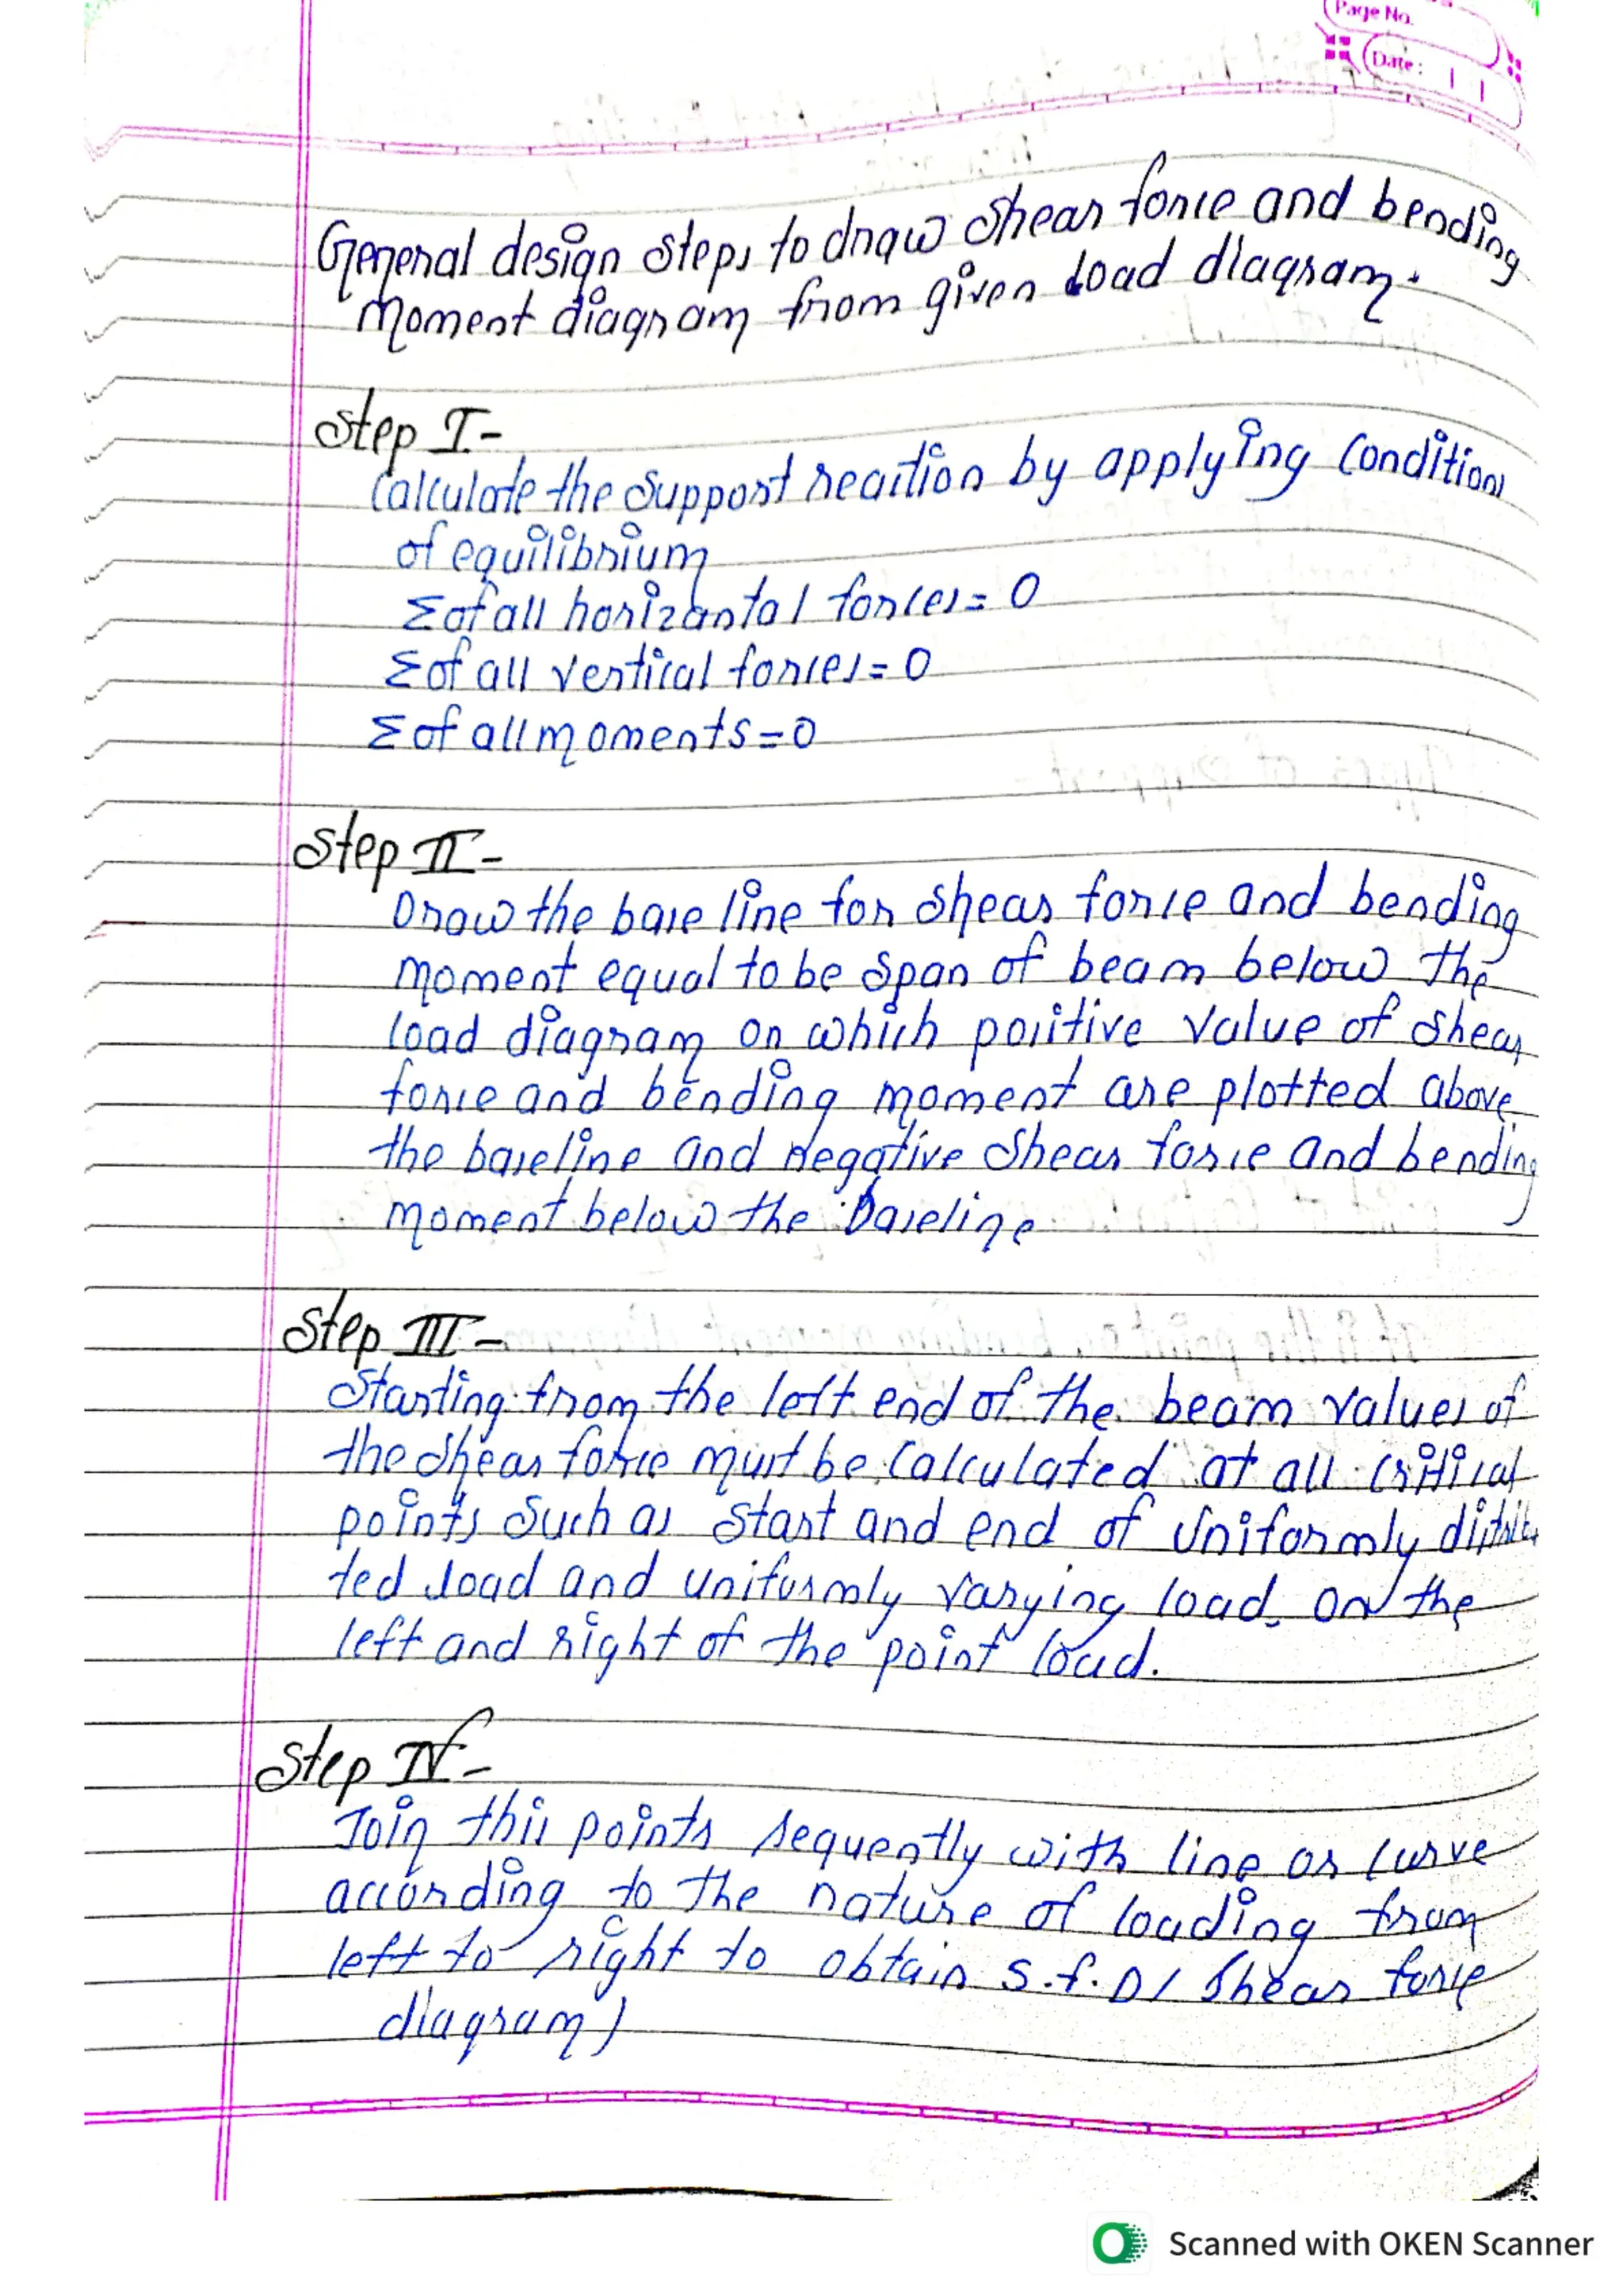 Page No.
Date :
General design steps to draw shear force and bending
moment diagram from given load diagram.
Step I-
Calculate the support reaction by applying Conditions
of equilibrium
Σ of all horizantal forces = 0
Σ of all vertical forces = 0
Σ of all moments = 0
Step II -
Draw the base line for shear force and bending
moment equal to be span of beam below the
load diagram on which positive value of shear
force and bending moment are plotted above
the baseline and negative shear force and bending
moment below the baseline
Step III -
Starting from the left end of the beam values of
the shear force must be calculated at all critical
points such as start and end of uniformly distribu
ted load and uniformly varying load. on the
left and right of the point load.
Step IV -
Join this points sequently with line or curve
according to the nature of loading from
left to right to obtain S.f.D ( Shear force
diagram)
Scanned with OKEN Scanner